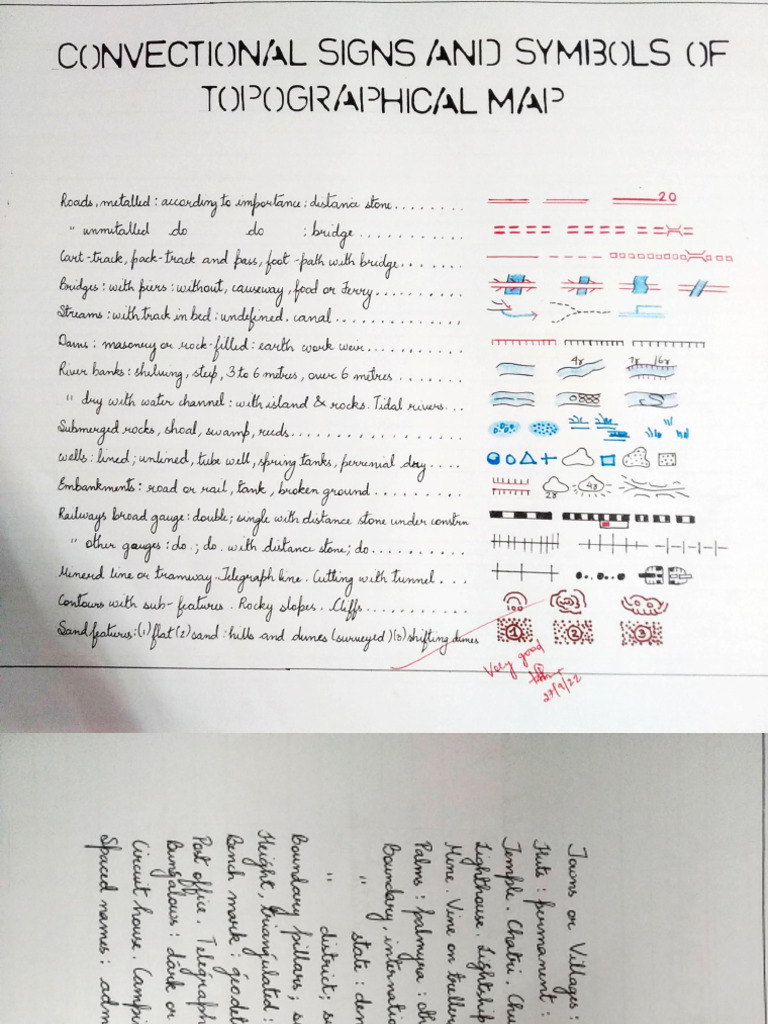 CONVECTIONAL SIGNS AND SYMBOLS OF
TOPOGRAPHICAL MAP
Roads, metalled: according to importance; distance stone........ 20
" unmetalled do do : bridge ............
Cart-track, pack-track and pass, foot-path with bridge.......
Bridges: with piers: without, causeway, food or Ferry.........
Streams: with track in bed: undefined. canal .............
Dams: masonry or rock-filled: earth work weir..........
River banks: shelving, steep, 3 to 6 metres, over 6 metres ....... 4r 7r 16r
" dry with water channel: with island & rocks. Tidal rivers...
Submerged rocks, shoal, swamp, reeds..............
Wells: lined; unlined, tube well, spring tanks, perrenial dry....
Embankments: road or rail, tank, broken ground ......... 28 48
Railways broad gauge: double; single with distance stone under constrn
" other gauges: do.; do. with distance stone; do..........
Minerd line or tramway. Telegraph line. Cutting with tunnel...
Contours with sub-features. Rocky slopes. Cliffs........... 100
Sand features: (1) flat (2) sand: hills and dunes (surveyed) (3) shifting dunes 1 2 3
Very good
27/9/22
Towns or Villages:
Huts: permanent:
Temple. Chatri. Chu
Lighthouse. Lightship
Mine. Vine on treller
Palms: palmyra: oth
Boundary, internatio
" state: dem
" district; su
Boundary pillars; su
Height, triangulated:
Bench mark: geodet
Post office. Telegraph
Bungalows: dark or
Circuit house. Campi
Spaced names: adm